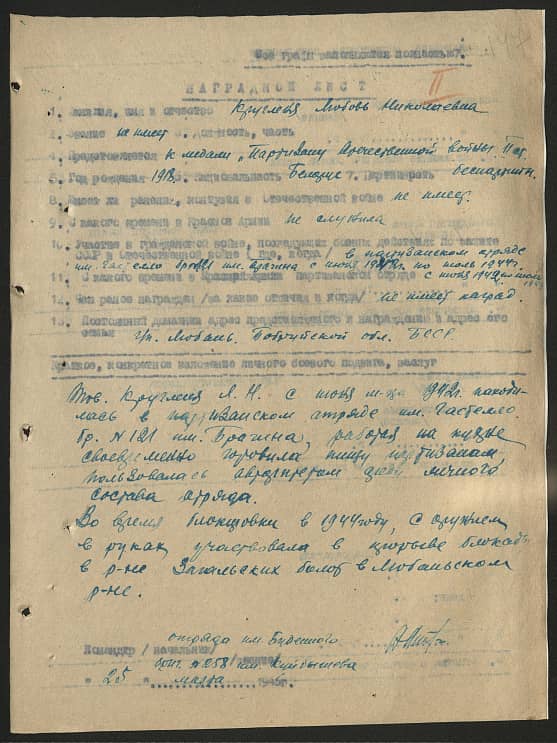 Все графы заполняются полностью.
II
НАГРАДНОЙ ЛИСТ
1. Фамилия, имя и отчество Кругленя Любовь Николаевна
2. Звание не имеет 3. Должность, часть
4. Представляется к медали „Партизану Отечественной войны" II ст.
5. Год рождения 1918 6. Национальность Белорус 7. Партийность беспартийн.
8. Имеет ли ранение, контузия в Отечественной войне не имеет.
9. С какого времени в Красной Армии не служила
10. Участие в гражданской войне, последующих боевых действиях по защите
СССР и Отечественной войне /где, когда/ в партизанском отряде
им. Гастелло бригады им. Брагина с июня 1942г. по июль 1944г.
11. С какого времени в партизанском отряде с июня 1942
12. Чем ранее награжден /за какие отличия и когда/ не имеет наград.
13. Постоянный домашний адрес представляемого к награждению и адрес его
семьи г/п. Любань. Бобруйской обл. БССР.
Краткое, конкретное изложение личного боевого подвига, заслуг
Тов. Кругленя Л. Н. с июня м-ца 1942г. находи-
лась в партизанском отряде им. Гастелло
бр. № 121 им. Брагина, работая на кухне
своевременно готовила пищу партизанам,
пользовалась авторитетом среди личного
состава отряда.
Во время блокировки в 1944 году, с оружием
в руках участвовала в прорыве блокады
в р-не Загальских болот в Любаньском
р-не.
отряда им. Буденного
Командир /начальник/
бриг. № 258 им. Куйбышева
" 25 " марта 1945г.